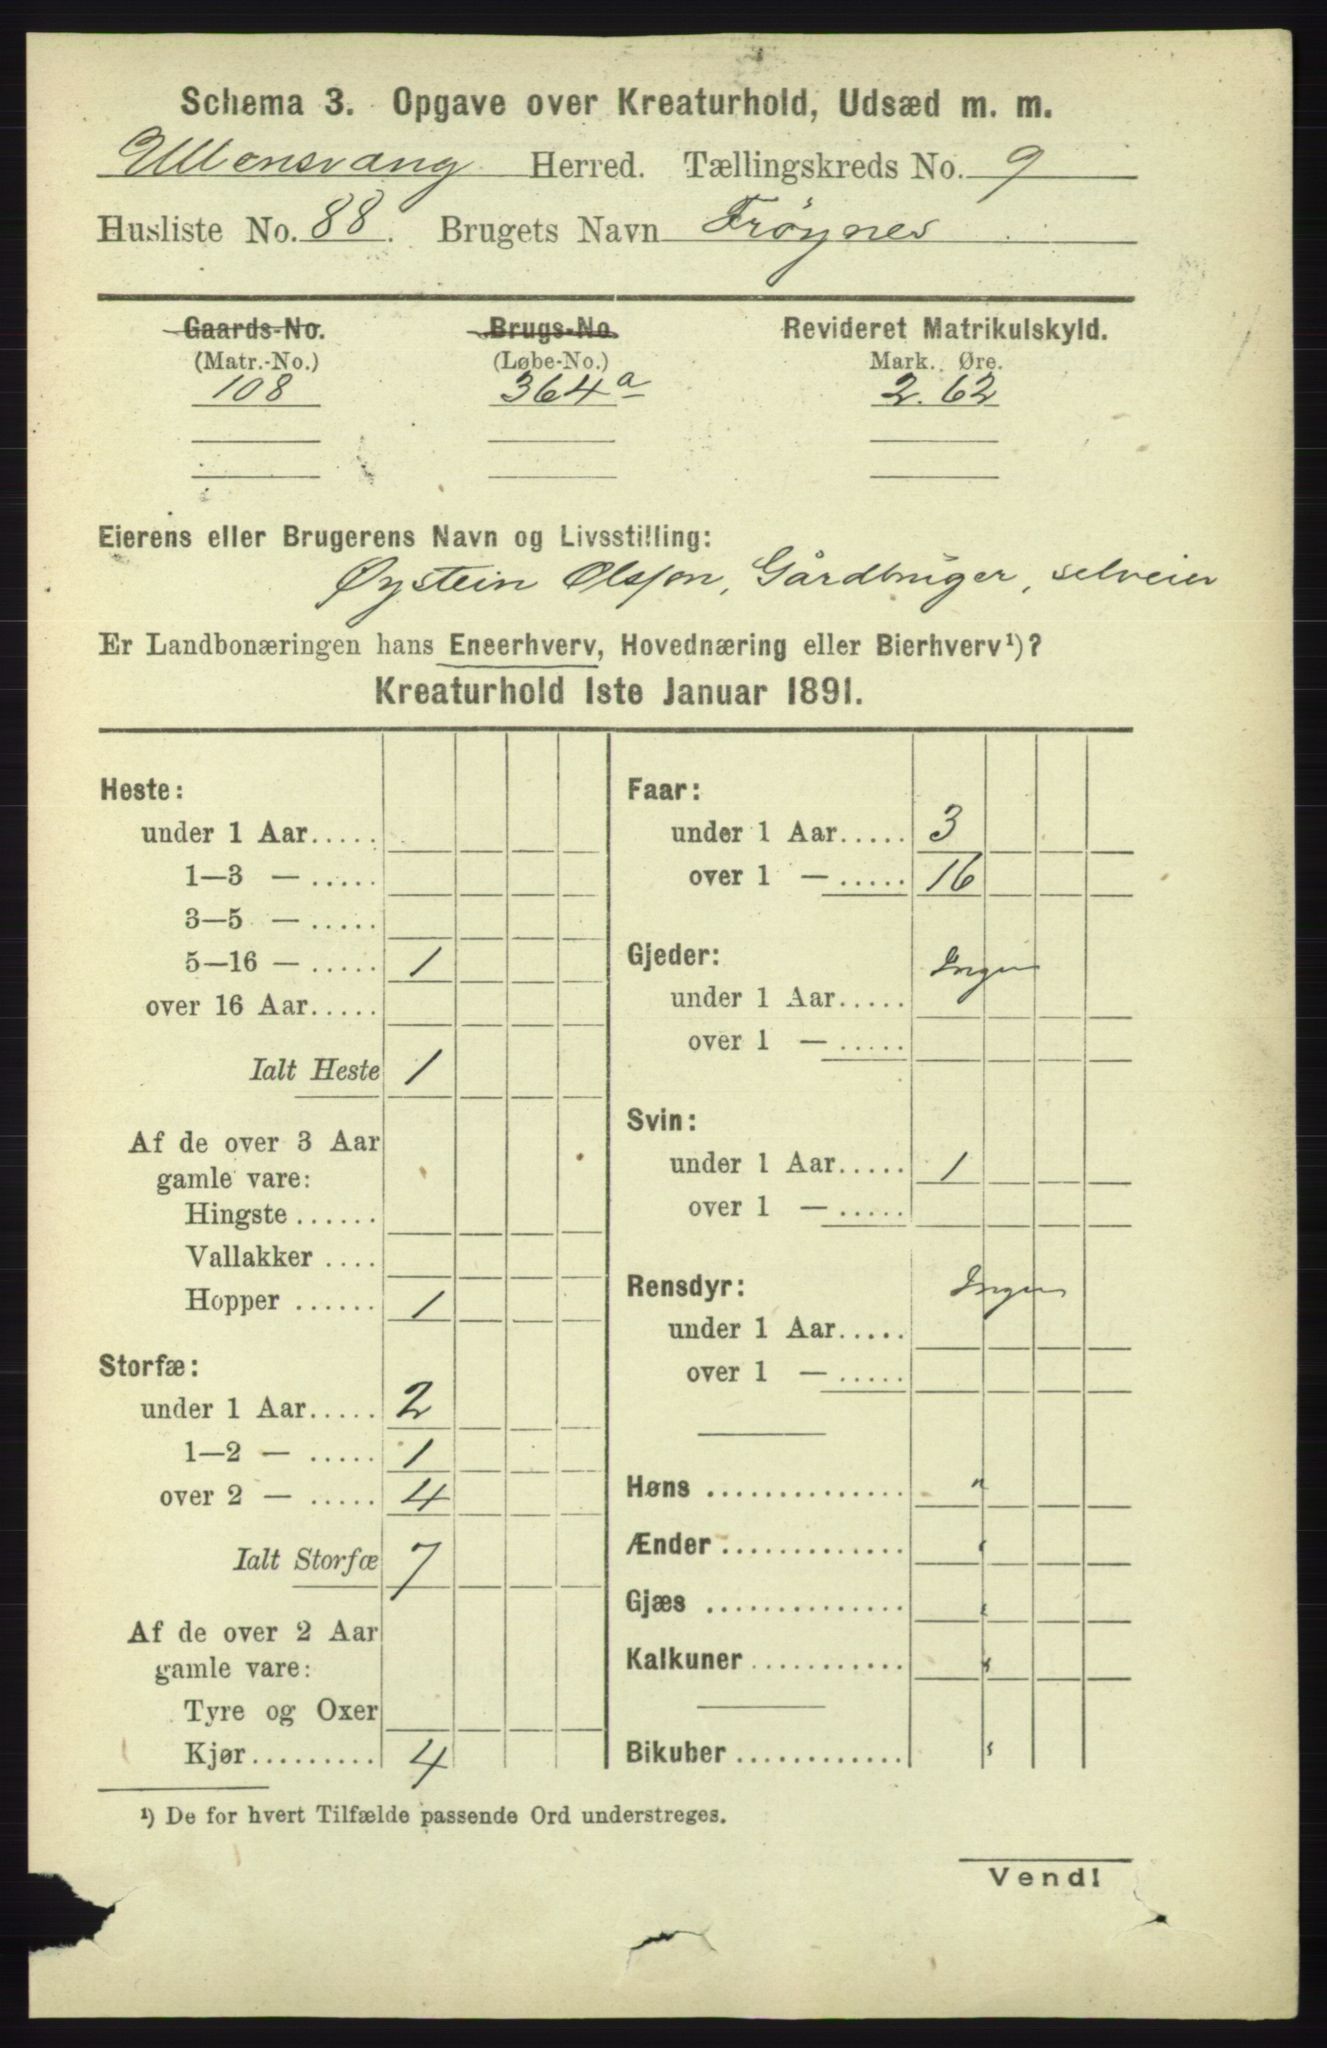 Schema 3. Opgave over Kreaturhold, Udsæd m. m.
Ullensvang Herred. Tællingskreds No. 9
Husliste No. 88. Brugets Navn Frøynes
Gaards-No. Brugs-No. Revideret Matrikulskyld.
(Matr.-No.) (Løbe-No.) Mark. Øre.
108 364a 2. 62
Eierens eller Brugerens Navn og Livsstilling:
Øystein Olsson, Gårdbruger, selveier
Er Landbonæringen hans Eneerhverv, Hovednæring eller Bierhverv¹)?
Kreaturhold 1ste Januar 1891.
Heste:
under 1 Aar.....
1—3 — .....
3—5 — .....
5—16 — ..... 1
over 16 Aar.....
Ialt Heste 1
Af de over 3 Aar
gamle vare:
Hingste ......
Vallakker ....
Hopper ...... 1
Storfæ:
under 1 Aar..... 2
1—2 — ..... 1
over 2 — ..... 4
Ialt Storfæ 7
Af de over 2 Aar
gamle vare:
Tyre og Oxer
Kjør......... 4
Faar:
under 1 Aar..... 3
over 1 — ..... 16
Gjeder: Ingen
under 1 Aar.....
over 1 — .....
Svin:
under 1 Aar..... 1
over 1 — .....
Rensdyr: Ingen
under 1 Aar.....
over 1 — .....
Høns .............. "
Ænder ............. "
Gjæs .............. "
Kalkuner ............ "
Bikuber ............. "
¹) De for hvert Tilfælde passende Ord understreges.
Vend!